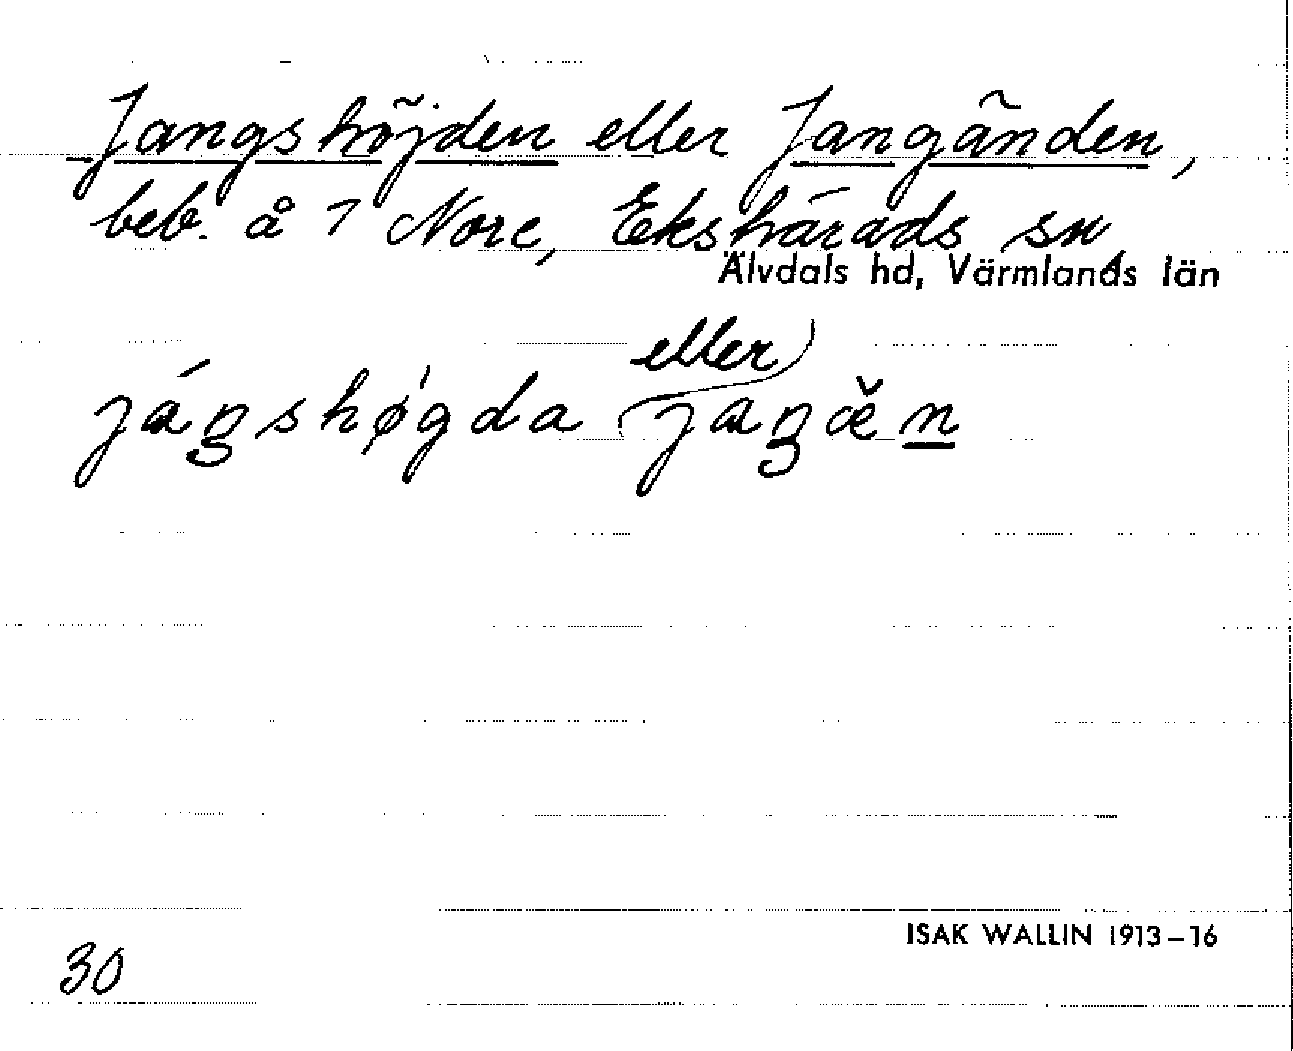 Jangshöjden eller Jangänden,
beb. å 7 Nore, Ekshärads sn,
Älvdals hd, Värmlands län
eller
jáŋshøgda jaŋæ̌n
30
ISAK WALLIN 1913–16